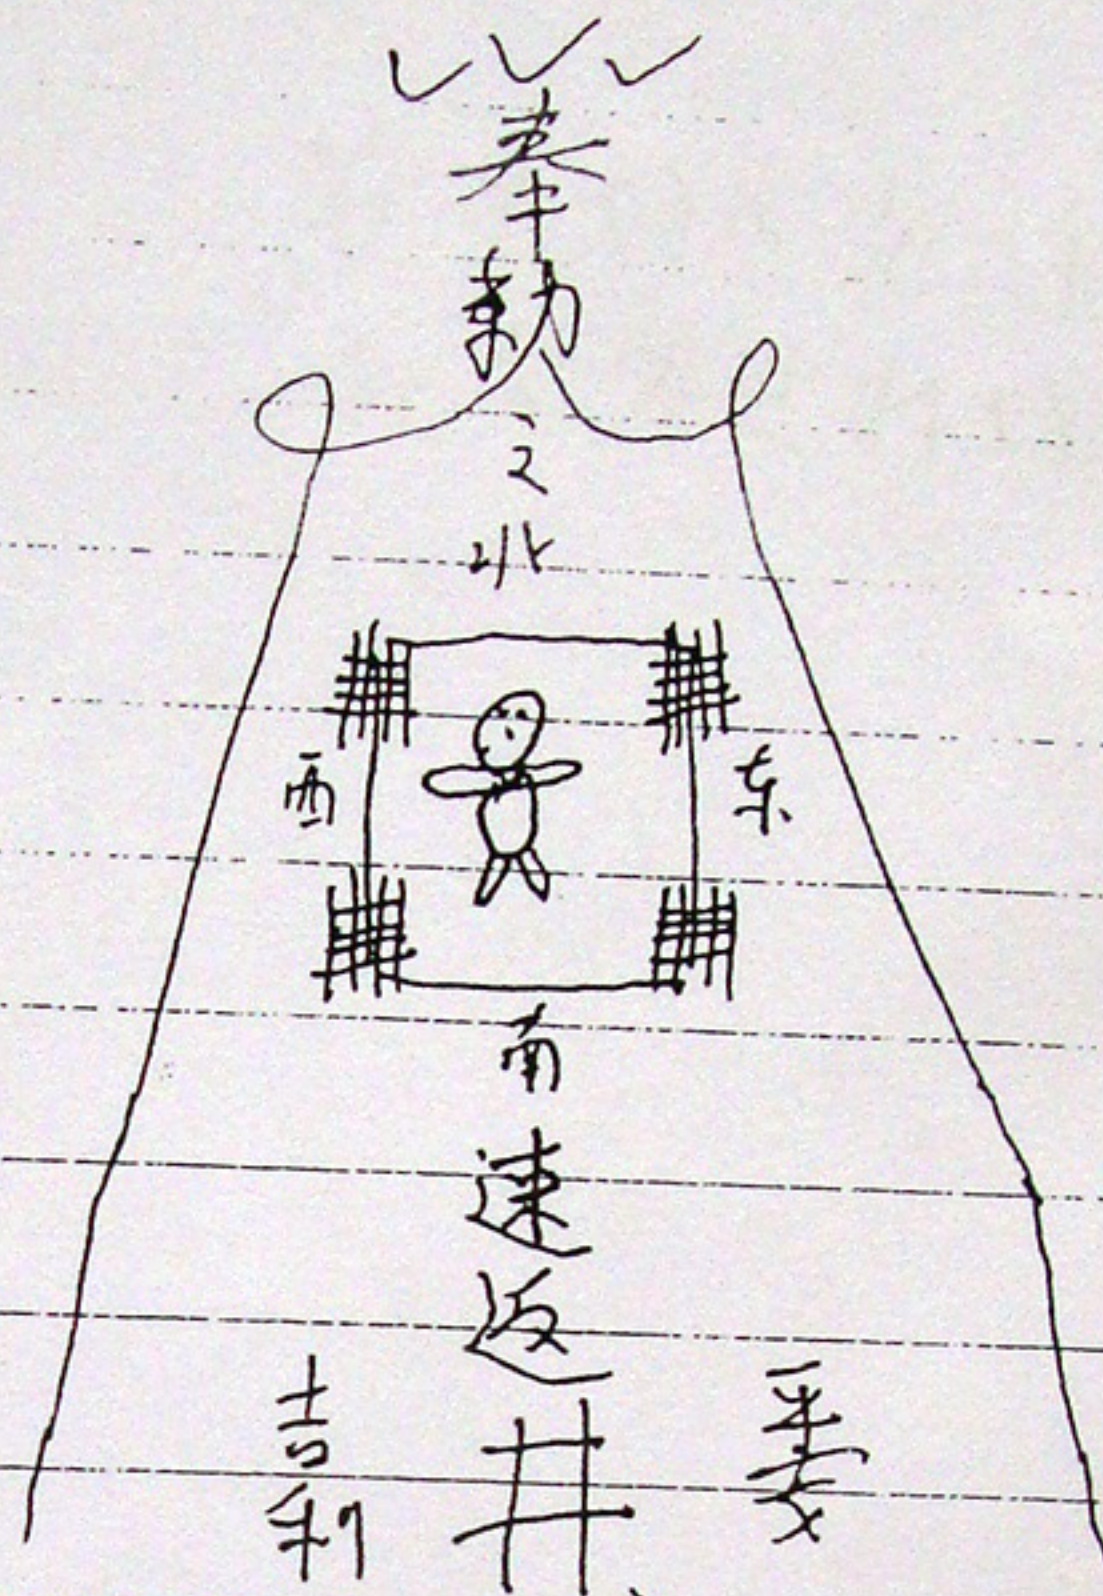 奉
勅
之
北
西 东
南
速
返
吉利 井 平安